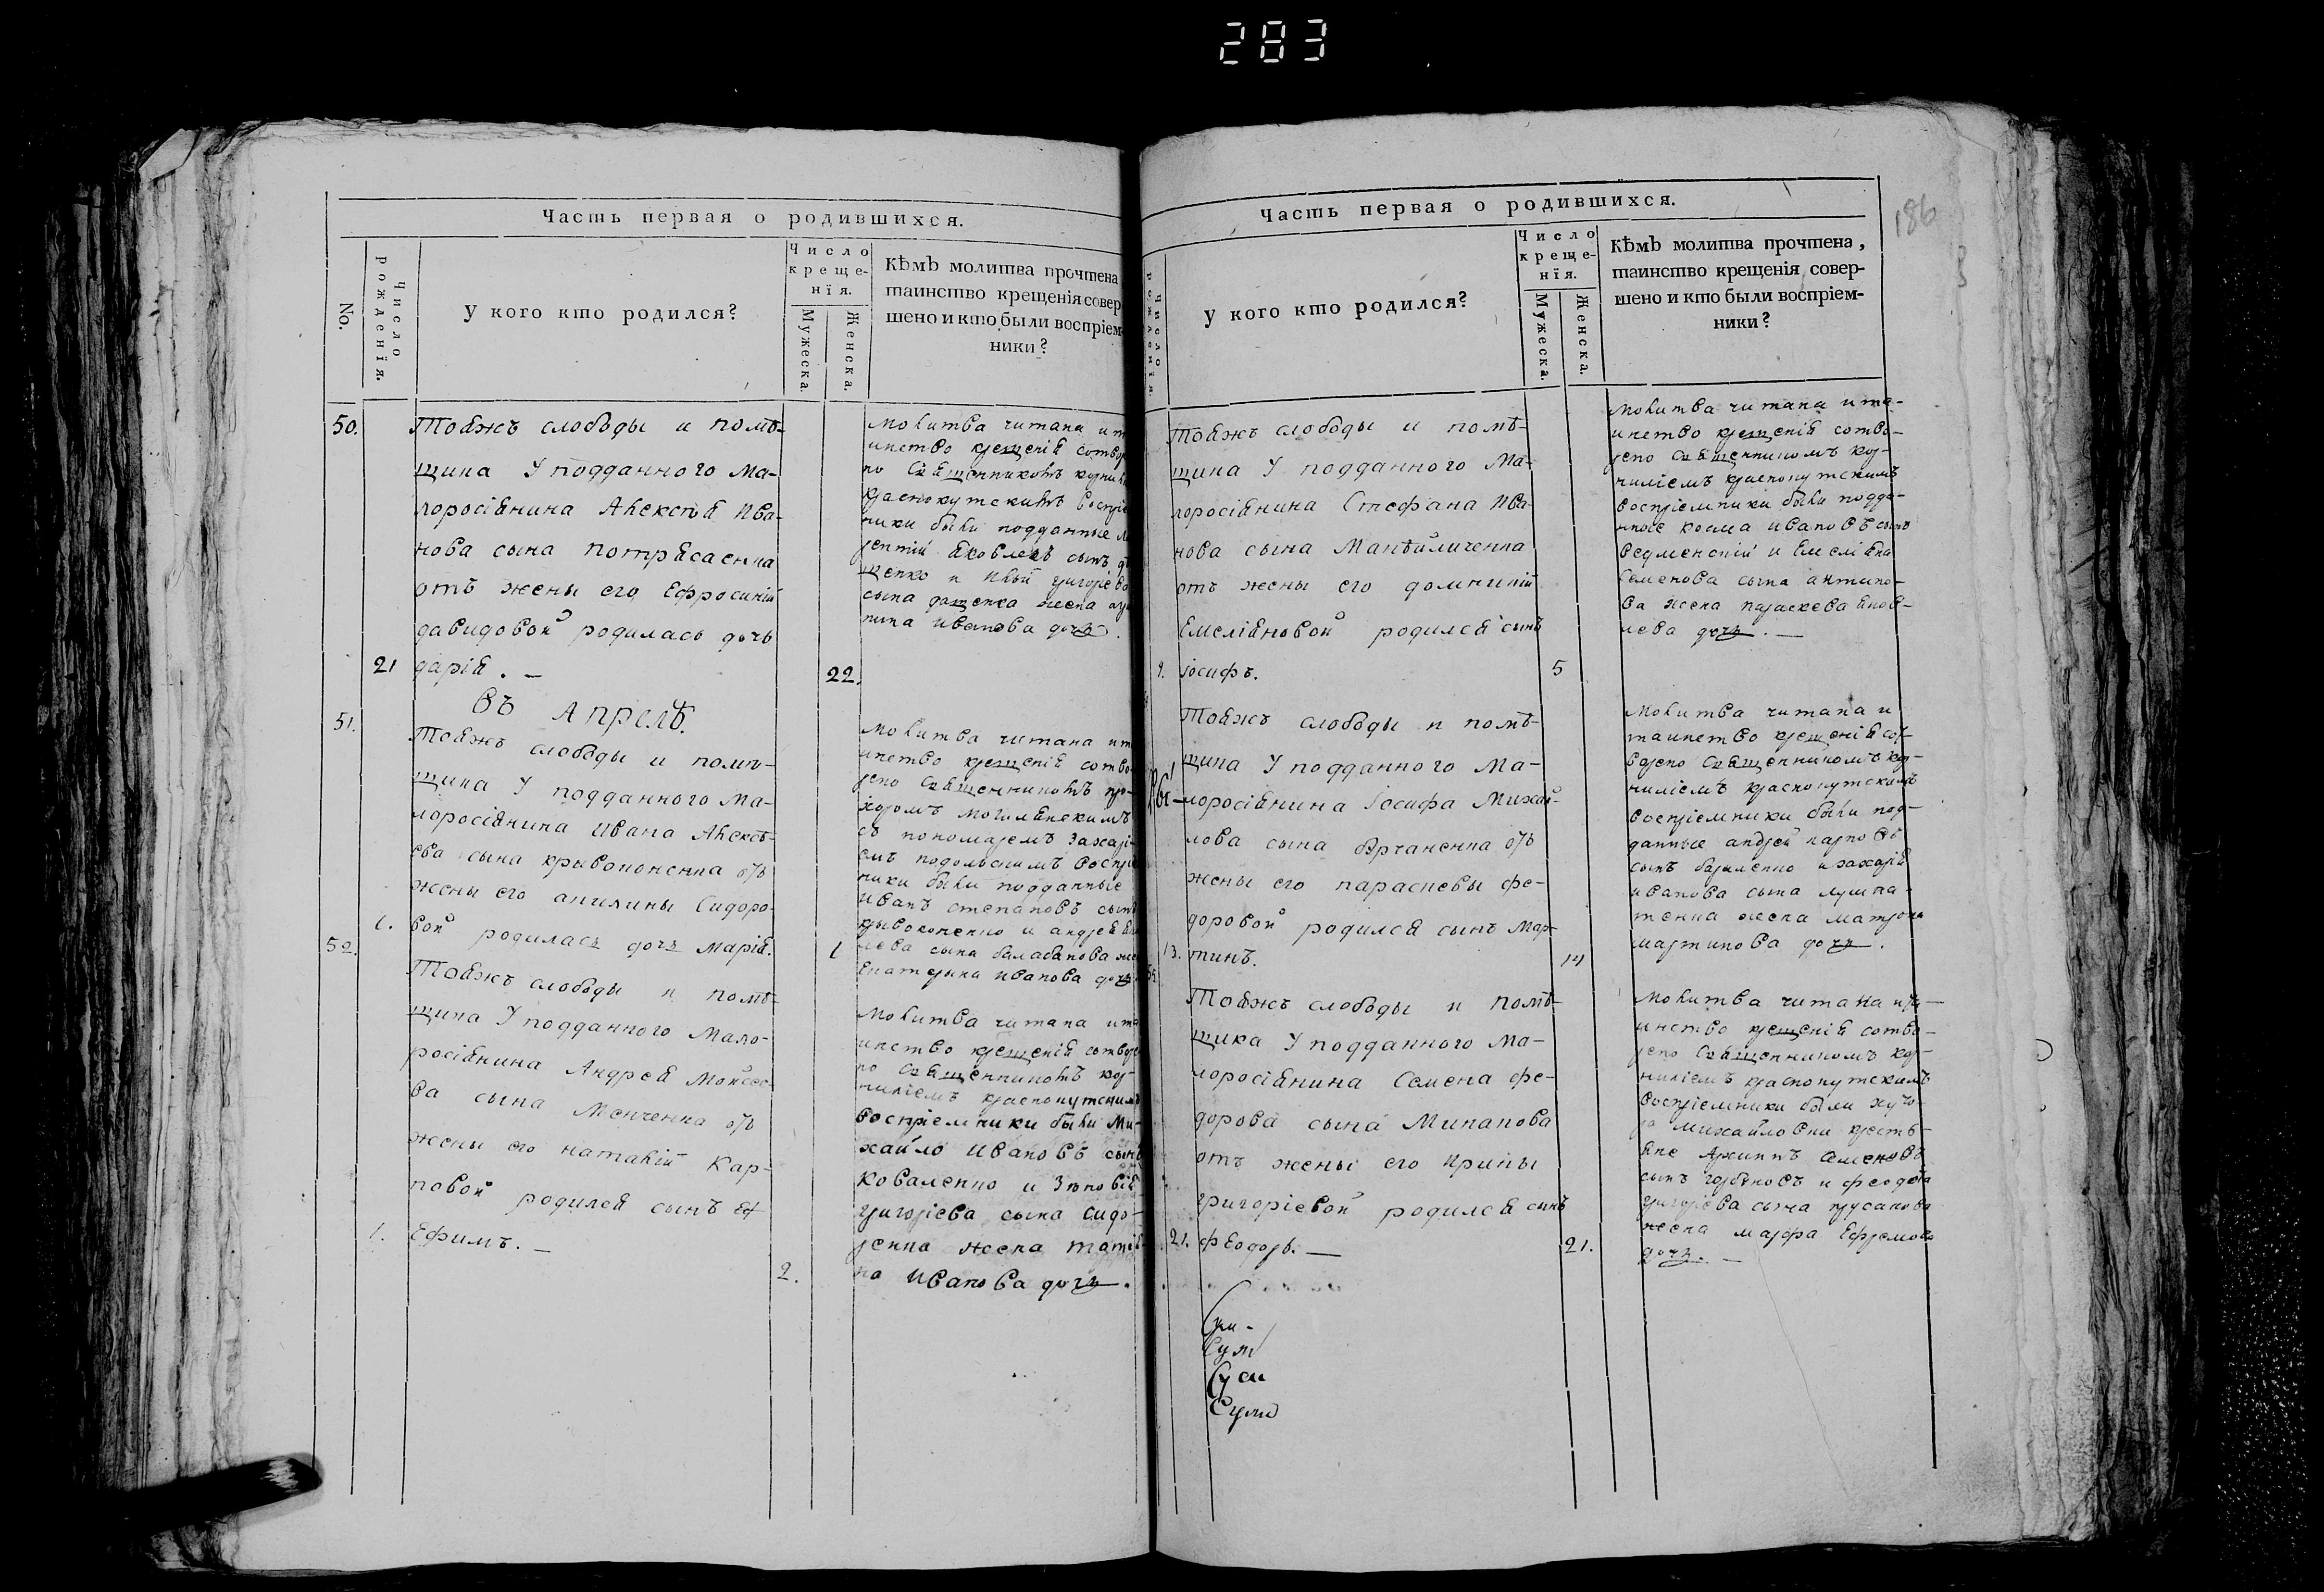 283
Часть первая о родившихся.
No.
Число рожденїя.
У кого кто родился?
Число
креще-
нїя.
Мужеска.
Женска.
Кѣмъ молитва прочтена
таинство крещенїя совер
шено и кто были воспрїем
ники?
50.
Тояжъ слободы и помѣ-
щика У подданного Ма-
лоросіянина Алексѣя Ива-
нова сына Потрясаенка
отъ жены его Ефросиніи
Давидовой родилась дочь
21 Дарія. —
22.
Молитва читана и та
инство крещенія сотвор
но Священникомъ
Краснокутскимъ воспріе
ники были подданные
Яковлевъ сынъ
щенко и григоріева
сына жена
Иванова дочь.
Въ Апрелѣ.
51.
Тояжъ слободы и помѣ-
щика У подданного Ма-
лоросіянина Ивана Алексѣ-
ева сына Кривоконенка отъ
жены его Акилины Сидоро-
1. вой родилась дочь Марія.
1
Молитва читана и та
инство крещенія сотво
рено Священникомъ про-
хоромъ Могилянскимъ
съ пономаремъ Захарі-
емъ Подольскимъ воспріе
ники были подданные
Иванъ Степановъ сынъ
Кривоконенко и Андрея
лева сына Балабанова же
Екатерина Иванова дочь
52.
Тояжъ слободы и помѣ-
щика У подданного Мало-
росіянина Андрея Моисее-
ва сына Менченка отъ
жены его Наталіи Кар-
повой родился сынъ Еф
1. Ефимъ. —
2.
Молитва читана и та
инство крещенія сотворе
но Священникомъ Кор-
ниліемъ Краснокутскимъ
воспріемники были Ми-
хайло Ивановъ сынъ
Коваленко и Зѣновія
григоріева сына Сидо-
ренка жена Татія-
на Иванова дочь.
Часть первая о родившихся.
186
Число рожденїя.
У кого кто родился?
Число
креще-
нїя.
Мужеска.
Женска.
Кѣмъ молитва прочтена,
таинство крещенїя совер-
шено и кто были воспрїем-
ники?
Тояжъ слободы и помѣ-
щика У подданного Ма-
лоросіянина Стефана Ива-
нова сына
отъ жены его Домникіи
Емеліяновой родился сынъ
Іосифъ.
5
Молитва читана и та-
инство крещенія сотво-
рено Священникомъ Кор-
ниліемъ Краснокутскимъ
воспріемники были подда-
нные Косма Ивановъ сынъ
Ведменскій и Емеліяна
Семенова сына Антипо-
ва жена Параскева Яков-
лева дочь. —
Тояжъ слободы и помѣ-
щика У подданного Ма-
лоросіянина Іосифа Михай-
лова сына отъ
жены его Парасневы Фе-
доровой родился сынъ Мар-
13. тинъ.
14
Молитва читана и
таинство крещенія сот-
ворено Священникомъ Кор-
ниліемъ Краснокутскимъ
воспріемники были под-
данные Андрей Карповъ
сынъ и Захарія
Иванова сына
тенка жена Матрона
Мартинова дочь.
Тояжъ слободы и помѣ-
щика У подданного Ма-
лоросіянина Семена Фе-
дорова сына Мипанова
отъ жены его Ирины
григоріевой родился сынъ
21. Феодоръ. —
21.
Молитва читана и та-
инство крещенія сотво-
рено Священникомъ Кор-
ниліемъ Краснокутскимъ
воспріемники были хуто
ра Михайловки крестья-
яне Архипъ Семеновъ
сынъ и Феодота
григоріева сына
жена Марфа Ефремова
дочь. —